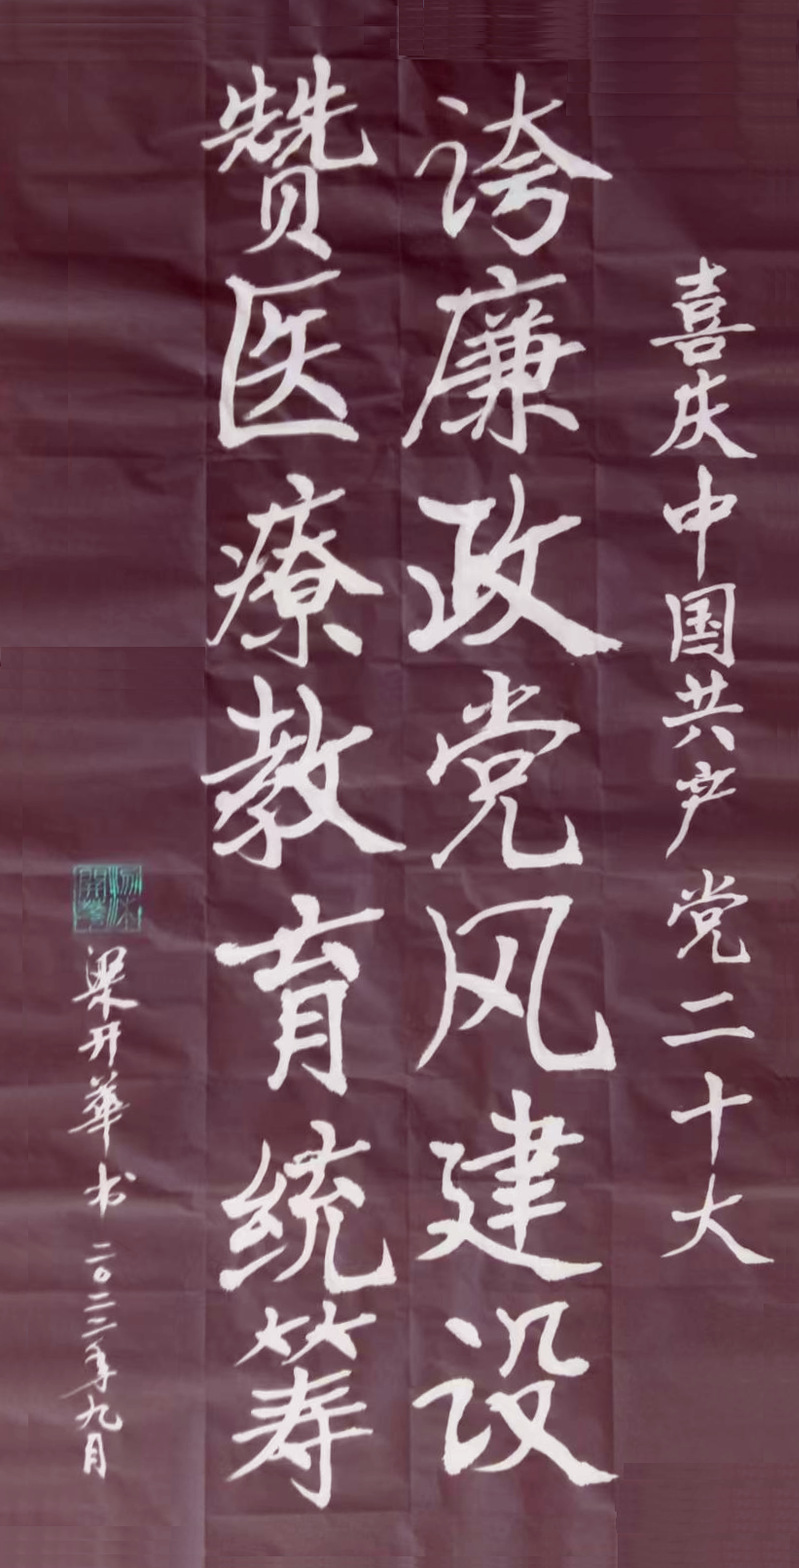 喜庆中国共产党二十大
誇廉政党风建设
赞医療教育统筹
梁开華书 二〇二二年九月